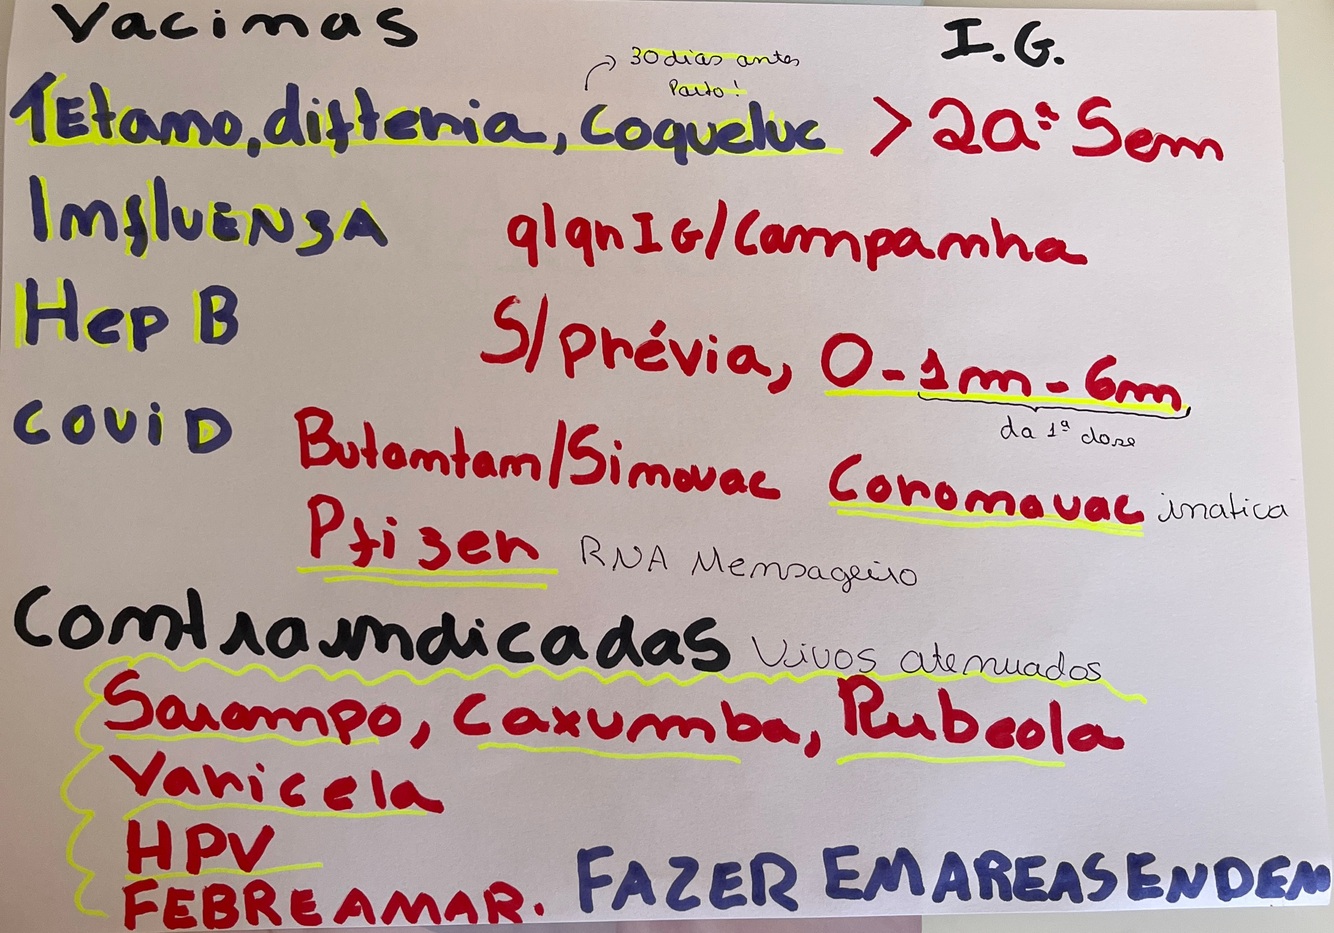 Vacinas I.G.
30 dias antes
Parto!
Tétano, difteria, Coqueluc > 20ª Sem
InfluENzA qlqr IG/Campanha
Hep B S/prévia, 0-1m-6m
da 1ª dose
COViD Butantam/Sinovac Coronavac inativa
Pfizer RNA Mensageiro
Contraindicadas Vivos atenuados
Sarampo, Caxumba, Rubéola
Varicela
HPV
FEBRE AMAR. FAZER EM AREAS ENDEM